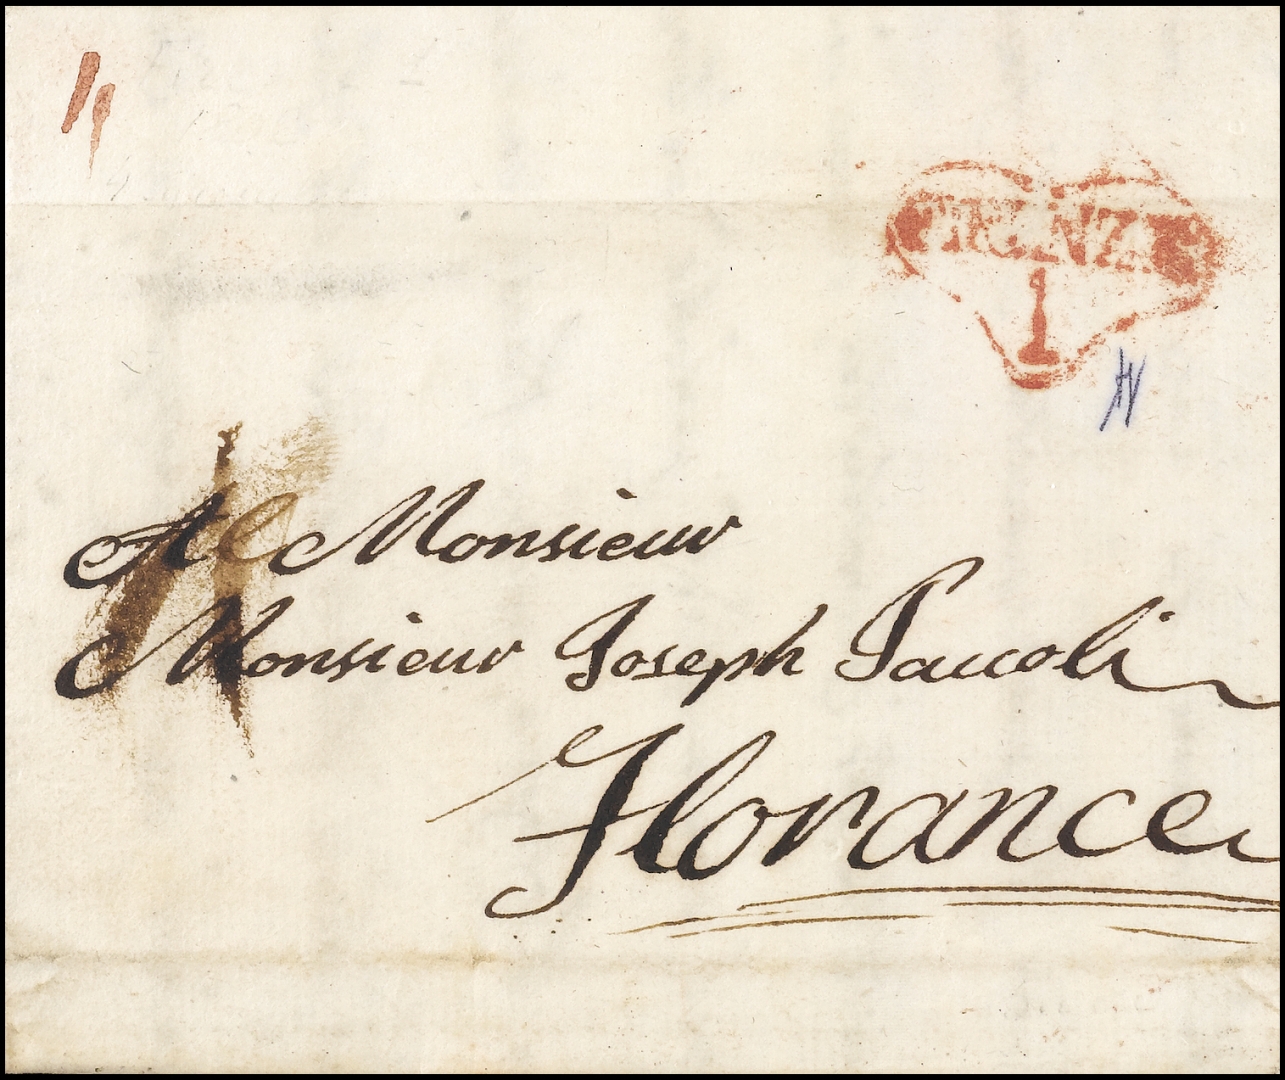 FIRENZA
1
A Monsieur
Monsieur Joseph Paccoli
Florance